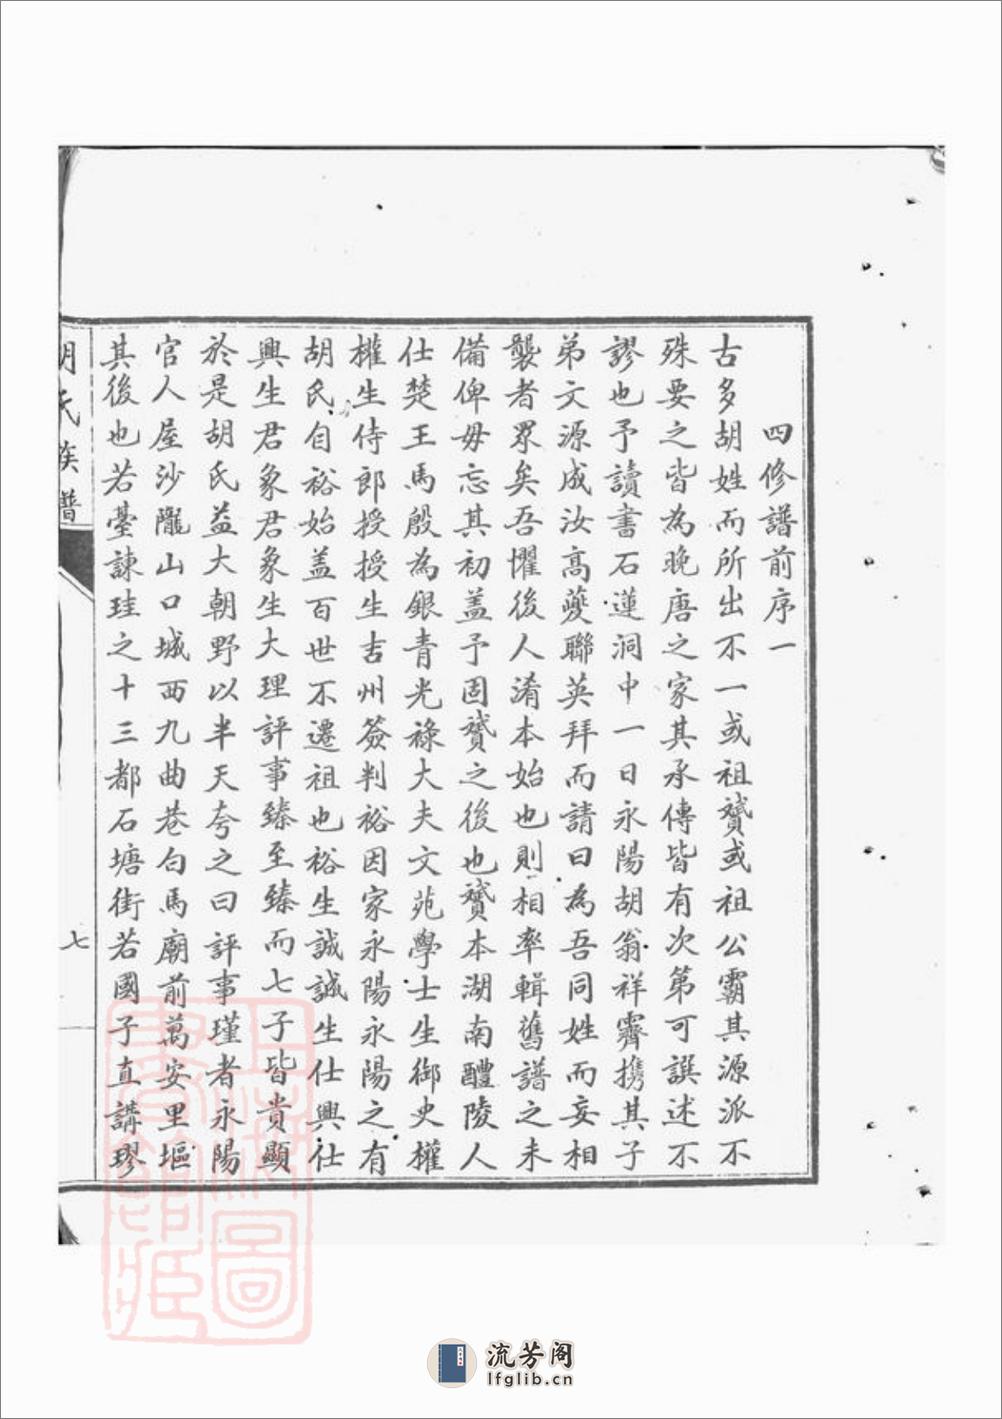 四修譜前序一
古多胡姓而所出不一或祖贇或祖公霸其源派不
殊要之皆為晚唐之家其承傳皆有次第可譔述不
謬也予讀書石蓮洞中一日永陽胡翁祥霽携其子
弟文源成汝高夔聯英拜而請曰為吾同姓而妄相
襲者眾矣吾懼後人淆本始也則相率輯舊譜之未
備俾毋忘其初盖予固贇之後也贇本湖南醴陵人
仕楚王馬殷為銀青光祿大夫文苑學士生御史權
權生侍郎授授生吉州簽判裕因家永陽永陽之有
胡氏自裕始盖百世不遷祖也裕生誠誠生仕興仕
興生君象君象生大理評事臻至臻而七子皆貴顯
於是胡氏益大朝野以半天夸之曰評事瑾者永陽
官人屋沙隴山口城西九曲巷白馬廟前萬安里塸
其後也若臺諫珪之十三都石塘街若國子直講璆
胡氏族譜
七
流芳阁
lfglib.cn